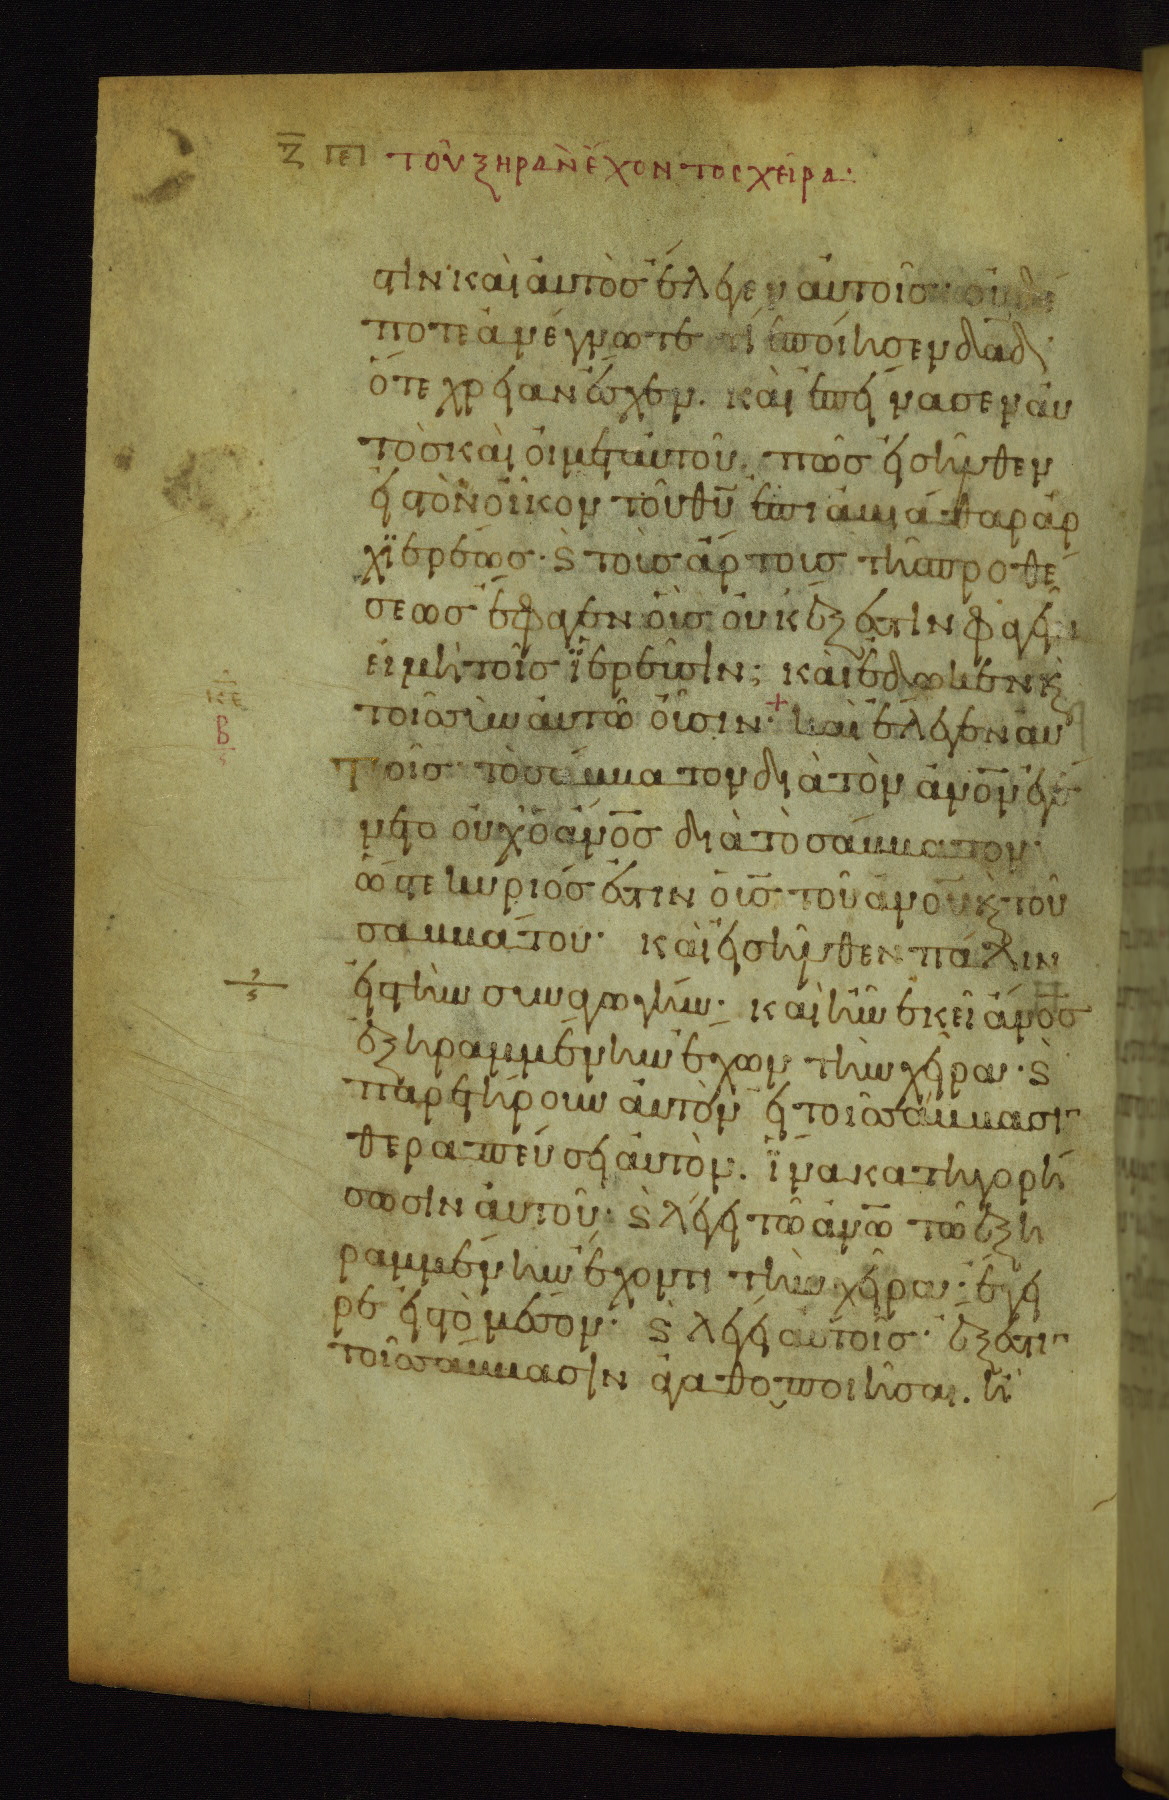 Ζ ΠΕ τοῦ ξηρὰν ἔχοντος χεῖρα:
στιν· καὶ αὐτὸσ ἔλεγεν αὐτοῖσ· οὐδέ
ποτε ἀνέγνωτε τί ἐποίησεν δαδ
ὅτε χρείαν ἔσχεν. καὶ ἐπείνασεν αὐ
τὸσ καὶ οἱ μετ αὐτοῦ. πῶσ εἰσῆλθεν
εἰσ τὸν οἶκον τοῦ θυ ἐπὶ ἀβιάθαρ ἀρ
χϊερέωσ· ϛ τοὺσ ἄρτουσ τῆσ προθέ
σεωσ ἔφαγεν οἷσ οὐκ ἔξεστιν φαγεῖν
εἰ μὴ τοῖσ ϊερεῦσιν; καὶ ἔδωκεν κ
τοῖσ σὺν αὐτῶ οὖσιν· καὶ ἔλεγεν αὐ
τοῖσ τὸ σάββατον διὰ τὸν ἀνον ἐγέ
νετο οὐχ ὁ ἀνοσ διὰ τὸ σάββατον·
ὥστε κύριόσ ἐστιν ὁ υσ τοῦ ἀνου κ τοῦ
σαββάτου· καὶ εἰσῆλθεν πάλιν
εἰσ τὴν συναγωγήν· καὶ ἦν ἐκεῖ ἀνοσ
ἐξηραμμένην ἔχων τὴν χεῖρα· ϛ
παρετήρουν αὐτὸν εἰ τοῖσ σάββασι
θεραπεύσει αὐτὸν. ἵνα κατηγορή
σωσιν αὐτοῦ· ϛ λέγει τῶ ἀνω τῶ ἐξη
ραμμένην ἔχοντι τὴν χεῖρα· ἔγει
ρε εἰσ τὸ μέσον· ϛ λέγει αὐτοῖσ· ἔξεστι
τοῖσ σάββασιν ἀγαθοποιῆσαι. ἢ